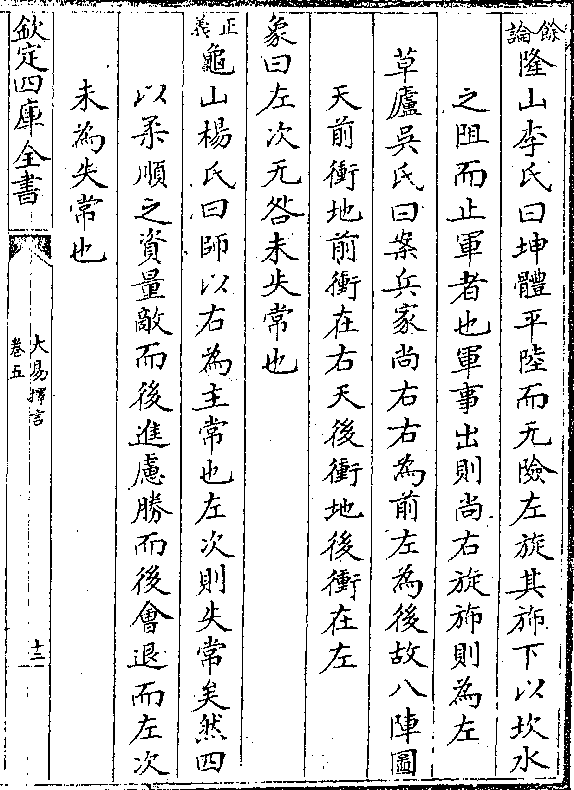 餘論隆山李氏曰坤體平陸而无險左旋其斾下以坎水
之阻而止軍者也軍事出則尚右旋斾則為左
草廬吳氏曰案兵家尚右右為前左為後故八陣圖
天前衝地前衝在右天後衝地後衝在左
象曰左次无咎未失常也
正義龜山楊氏曰師以右為主常也左次則失常矣然四
以柔順之資量敵而後進慮勝而後會退而左次
未為失常也
欽定四庫全書
大易擇言
卷五
十二